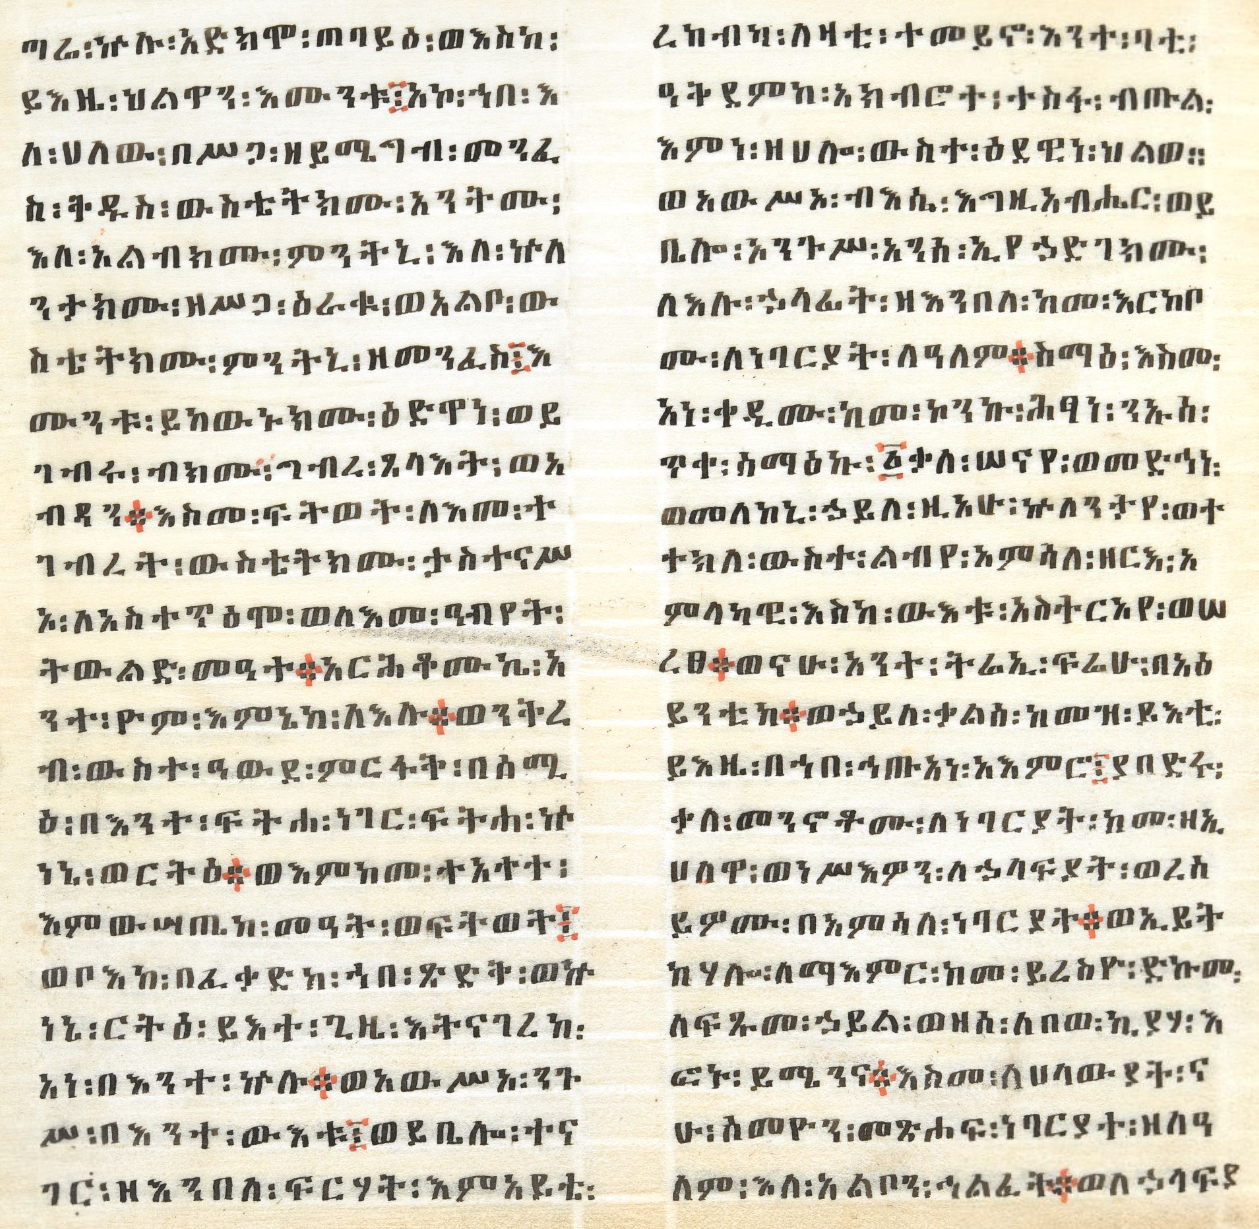 ጣሬ፡ኵሉ፡አድክሞ፡ጠባይዕ፡ወእስከ፡
ይእዜ፡ህልዋን፡እሙንቱ፤አኮ፡ኀበ፡እ
ለ፡ህለው፡በሥጋ፡ዘይሜግብ፡መንፈ
ስ፡ቅዱስ፡ውስቴትክሙ፡አንትሙ፡
እለ፡አልብክሙ፡ምንትኒ፡እለ፡ኵለ
ንታክሙ፡ዘሥጋ፡ዕራቁ፡ወአልቦ፡ው
ስቴትክሙ፡ምንትኒ፡ዘመንፈስ፤እ
ሙንቱ፡ይከውኑክሙ፡ዕድዋነ፡ወይ
ገብሩ፡ብክሙ፡ግብረ፡ጸላእት፡ወአ
ብዳን።እስመ፡ፍትወት፡ለእመ፡ተ
ገብረት፡ውስቴትክሙ፡ታስተናሥ
አ፡ለአስተጥዕሞ፡ወለእመ፡ዓብየት፡
ትውልድ፡መዓተ።አርሕቆሙኬ፡አ
ንተ፡ዮም፡እምኔከ፡ለእሉ።ወንትረ
ብ፡ውስተ፡ዓውደ፡ምርፋት፡በሰሚ
ዕ፡በእንተ፡ፍትሐ፡ነገር፡ፍትሐ፡ኵ
ነኔ፡ወርትዕ።ወእምከመ፡ተአተተ፡
እምውሣጤከ፡መዓት፡ወፍትወት፤
ወቦእከ፡በፈቃድከ፡ኀበ፡ጽድት፡ወኵ
ነኒ፡ርትዕ፡ይእተ፡ጊዜ፡እትናገረከ፡
አነ፡በእንተ፡ኵሉ።ወአውሥአ፡ንጉ
ሥ፡በእንተ፡ውእቱ፤ወይቤሎ፡ተና
ገር፡ዘእንበለ፡ፍርሃት፡እምአይቴ፡
ረከብካ፡ለዛቲ፡ተመይኖ፡እንተ፡ባቲ፡
ዓትደምከ፡አክብሮተ፡ተስፋ፡ብጡል፡
እምነ፡ዘሀሎ፡ውስተ፡ዕደዊነ፡ህልወ።
ወአውሥአ፡ብእሴ፡እግዚአብሔር፡ወይ
ቤሎ፡ኦንጉሥ፡አንሰ፡ኢየኃድገክሙ፡
ለእሉ፡ኃላፊት፡ዘእንበለ፡ከመ፡እርከቦ
ሙ፡ለነባርያት፡ለዓለም።ስማዕ፡እስመ፡
አነ፡ቀዲሙ፡ከመ፡ኮንኩ፡ሕፃነ፡ንኡስ፡
ጥቀ፡ሰማዕኩ፡፩ቃለ፡ሠናየ፡ወመድኀነ፡
ወመለከኒ፡ኃይለ፡ዚአሁ፡ኵለንታየ፡ወተ
ተክለ፡ውስተ፡ልብየ፡አምሳለ፡ዘርእ፡አ
ምላካዊ፡እስከ፡ውእቱ፡አስትርአየ፡ወሠ
ረፀ።ወናሁ፡አንተ፡ትሬኢ፡ፍሬሁ፡በአዕ
ይንቲከ።ወኃይለ፡ቃልሰ፡ከመዝ፡ይእቲ፡
ይእዜ፡በኀበ፡ኅጡአነ፡አእምሮ፤ያበድሩ፡
ቃለ፡መንኖቶሙ፡ለነባርያት፡ከመ፡ዘኢ
ሀለዋ፡ወነሥእዎን፡ለኃላፍያት፡ወረሰ
ይዎሙ፡በአምሳለ፡ነባርያት።ወኢይት
ከሃሎ፡ለማእምር፡ከመ፡ይረስዮ፡ድኩመ፡
ለፍጹመ፡ኃይል፡ወዘሰ፡ለበወ፡ኢያሃ፡እ
ፎኑ፡ይሜንና።እስመ፡ለሀላውያት፡ና
ሁ፡ስመዮን፡መጽሐፍ፡ነባርያተ፡ዘለዓ
ለም፡እለ፡አልቦን፡ኅልፈት።ወለኃላፍያ